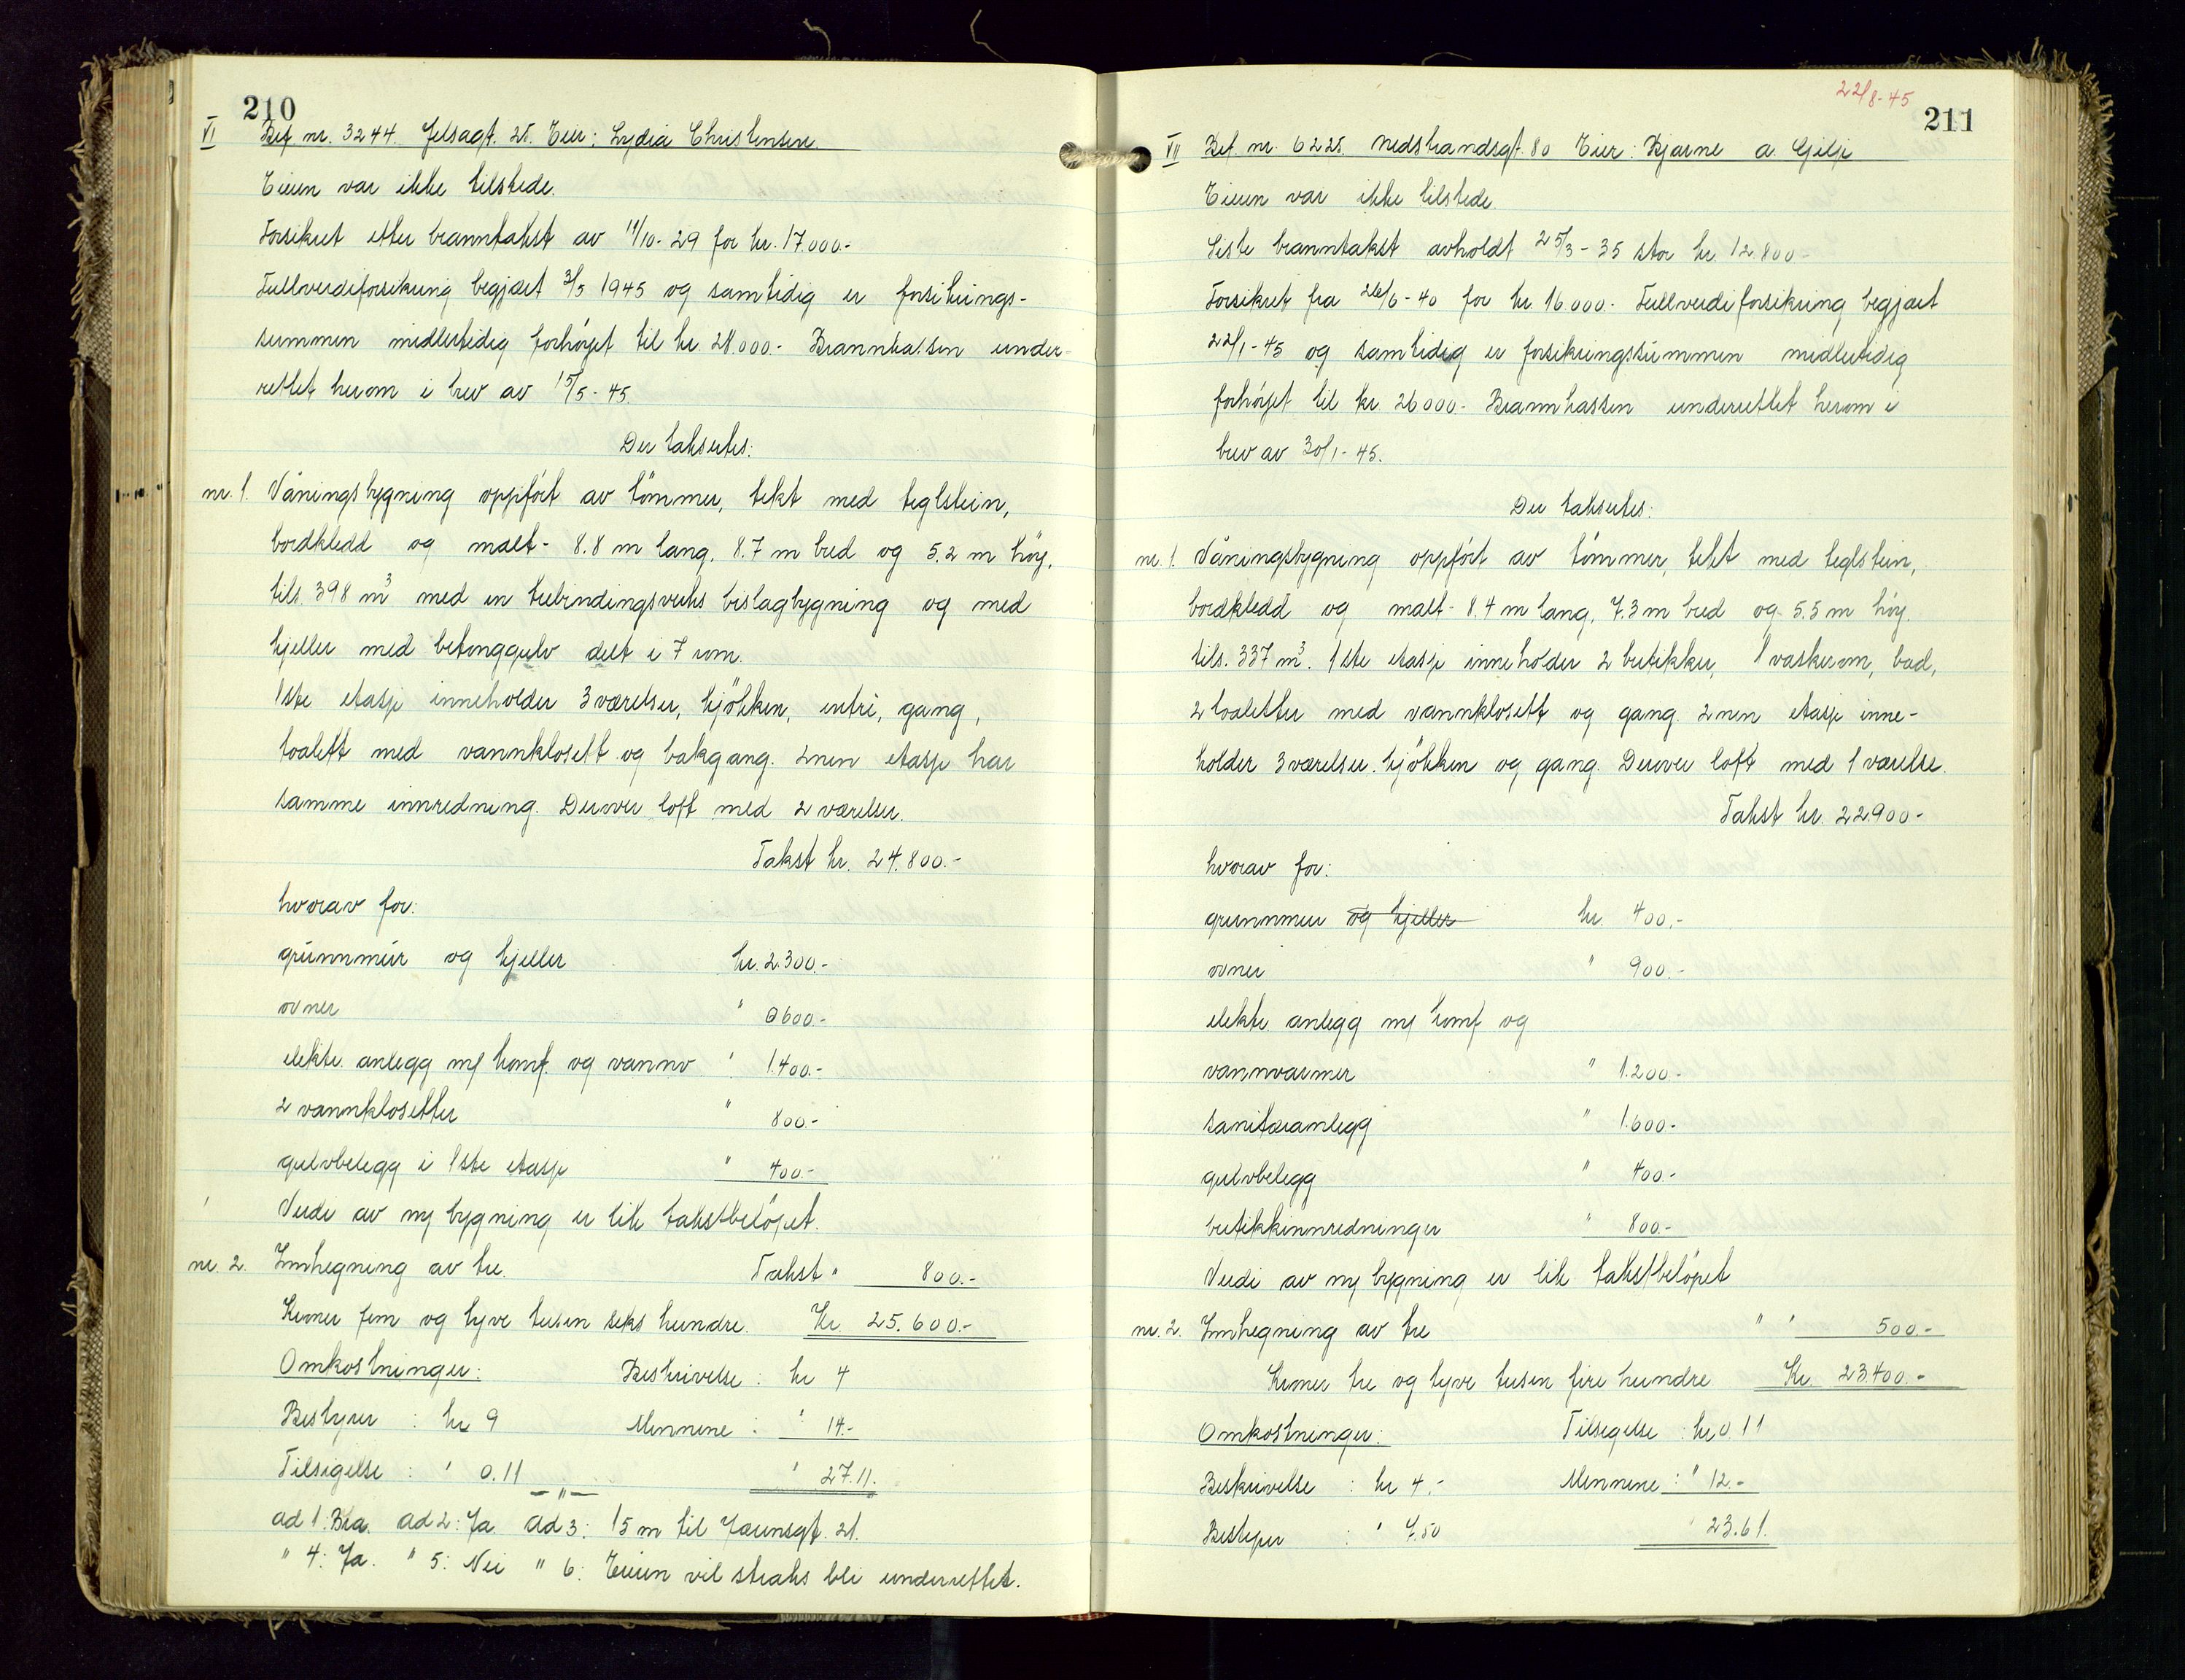 210
VI Brf. nr. 3244. Jelsagt. 25. Eier: Lydia Christensen
Eieren var ikke tilstede.
Forsikret etter branntakst av 11/10-29 for kr. 17.000.-
Fullverdiforsikring begjært 3/5 1945 og samtidig er forsikrings-
summen midlertidig forhöjet til kr 28.000.- Brannkassen under-
rettet herom i brev av 15/5-45.
Der takseres:
nr. 1. Våningsbygning oppfört av tömmer, tekt med teglstein,
bordkledd og malt - 8.8 m lang, 8.7 m bred og 5.2 m höy,
tils. 398 m3 med en utbindingsverks bislagbygning og med
kjeller med betonggulv delt i 7 rom.
1ste etasje inneholder 3 værelser, kjökken, entré, gang,
toalett med vannklosett og bakgang. 2nen etasje har
samme innredning. Derover loft med 2 værelser.
Takst kr. 24.800.-
hvorav for:
grunnmur og kjeller kr. 2.300.-
ovner " 600.-
elektr. anlegg m/ komf. og vannv " 1.400.-
2 vannklosetter " 800.-
gulvbelegg i 1ste etasje " 400.-
Verdi av ny bygning er lik takstbelöpet.
nr. 2. Innhegning av tre. Takst " 800.-
Kroner fem og tyve tusen seks hundre. Kr. 25.600.-
Omkostninger: Beskrivelse : kr 4
Bestyrer : kr 9 Mennene : " 14.-
Tilsigelse : " 0.11 " 27.11.
— " —
ad 1: Bra. ad 2: Ja ad 3: 15 m til Jaunsgt. 21.
" 4: Ja. " 5: Nei " 6: Eieren vil straks bli underrettet.
22/8-45
211
VII Brf. nr. 6225. Nedstrandsgt. 80 Eier: Bjarne A. Gilje
Eieren var ikke tilstede.
Siste branntakst avholdt 25/3-35 stor kr 12.800-
Forsikret fra 26/6-40 for kr 16.000.- Fullverdiforsikring begjært
22/1-45 og samtidig er forsikringssummen midlertidig
forhöjet til kr 26000.- Brannkassen underrettet herom i
brev av 30/1-45.
Der takseres:
nr. 1. Våningsbygning oppfört av tömmer, tekt med teglstein,
bordkledd og malt - 8.4 m lang, 7.3 m bred og 5.5 m höy.
tils. 337 m3. 1ste etasje inneholder 2 butikker, 1 vaskerom, bad,
2 toaletter med vannklosett og gang. 2nen etasje inne-
holder 3 værelser, kjökken og gang. Derover loft med 1 værelse.
Takst kr. 22.900-
hvorav for:
grunnmur og kjeller kr. 400.-
ovner " 900.-
elektr. anlegg m/ komf og
vannvarmer " 1.200.-
sanitæranlegg " 1.600.-
gulvbelegg " 400.-
butikkinnredninger " 800.-
Verdi av ny bygning er lik takstbelöpet
nr. 2. Innhegning av tre " " 500.-
Kroner tre og tyve tusen fire hundre Kr. 23.400.-
Omkostninger: Tilsigelse : kr 0 11
Beskrivelse : kr 4.- Mennene : " 12.-
Bestyrer : " 7.50 " 23.61.